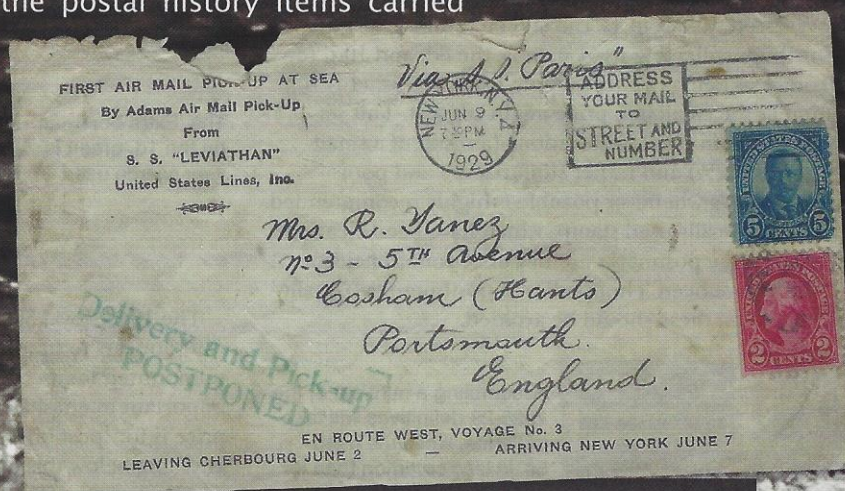 the postal history items carried
FIRST AIR MAIL PICK-UP AT SEA
By Adams Air Mail Pick-Up
From
S. S. "LEVIATHAN"
United States Lines, Inc.
Via S. S. Paris"
NEW YORK, N.Y.
JUN 9
PM
1929
ADDRESS
YOUR MAIL
TO
STREET AND
NUMBER
UNITED STATES POSTAGE
5 CENTS 5
UNITED STATES POSTAGE
2 CENTS 2
Mrs. R. Yanez
No 3 - 5TH Avenue
Cosham (Hants)
Portsmouth.
England.
Delivery and Pick-up
POSTPONED
EN ROUTE WEST, VOYAGE No. 3
LEAVING CHERBOURG JUNE 2 — ARRIVING NEW YORK JUNE 7